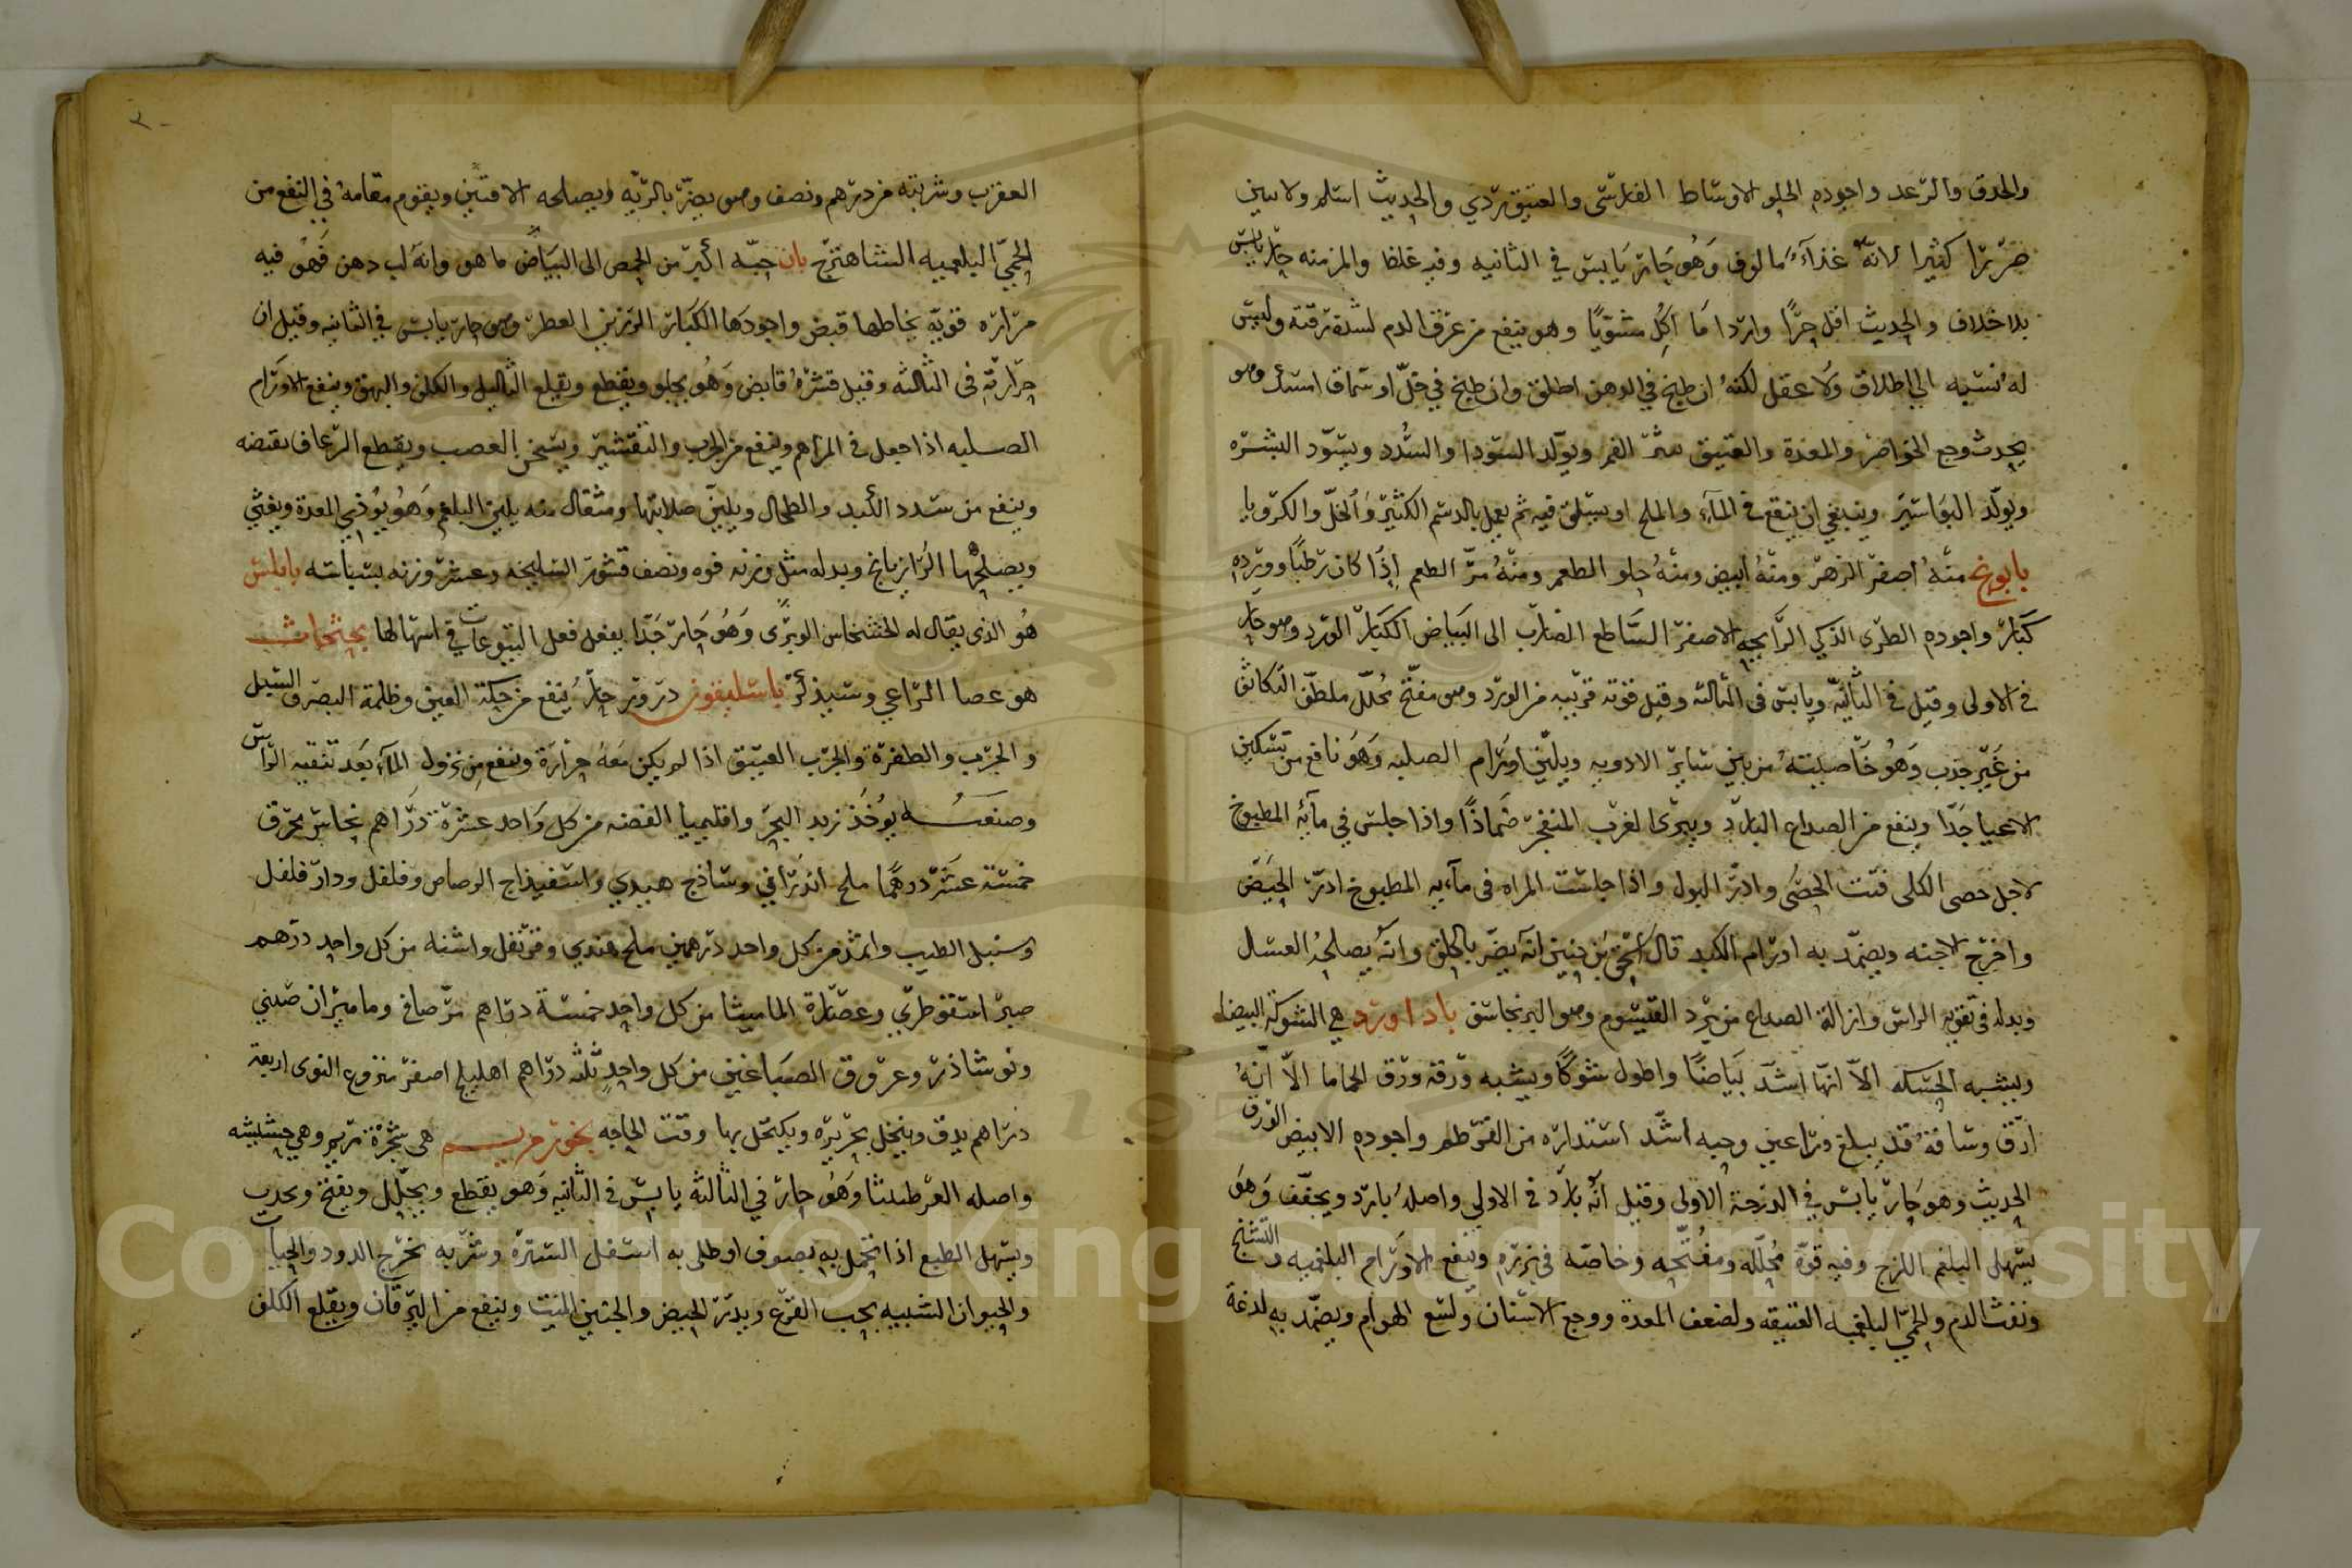 والحدق والرعد واجوده الحلو الاوساط الفارسى والعتيق ردي والحديث اسلم ولا يبين
ضررا كثيرا لانه غذاء مالوف وهو حار يابس في الثانيه وفيه غلظ والمزمنه حار يابس
بلا خلاف والحديث اقل حرا واردا ما اكل مشويا وهو ينفع من عرق الدم لشدة رقته وليس
له نسبه الى اطلاق ولا عقل لكنه ان طبخ في الدهن اطلق وان طبخ في خل او سماق امسك وهو
يحدث وجع الخواصر والمعدة والعتيق الفم ويولد السودا والسدد ويسود البشره
ويولد البواسير وينبغي ان ينقع في الماء والملح او يسلق فيه ثم يعمل بالدسم الكثير والخل والكرويا
بابونج منه اصفر الزهر ومنه ابيض ومنه حلو الطعم ومنه مر الطعم اذا كان رطبا وورده
كبار واجوده الطرى الذكي الرايحه الاصفر الساطع الضارب الى البياض الكبار الورد وهو حار
في الاولى وقيل في الثانيه ويابس فى الثالثه وقيل قوته قريبه من الورد وهو مفتح محلل ملطف التكاثف
من غير جذب وهو خاصيته من بين ساير الادويه ويلين اورام الصلبه وهو نافع من تسكين
الاعيا جدا وينفع من الصداع البارد ويبرى الغرب المنفجر ضمادا واذا جلس في مآئه المطبوخ
لاجل حصى الكلى فتت الحصى وادر البول واذا جلست المراه فى مآيه المطبوخ ادر الحيض
واخرج الاجنه ويضمد به اورام الكبد قال اسحق بن حنين انه يضر بالحلق وانه يصلحه العسل
وبدله في تقويه الراس وازالة الصداع من برد القيسوم وهو البرنجاسف باداورد هي الشوكة البيضا
ويشبه الحسكه الا انها اشد بياضا واطول شوكا ويشبه ورقه ورق الحماما الا انه
ادق وساقه قد يبلغ دراعين وحبه اشد استداره من القرطم واجوده الابيض الورق
الحديث وهو حار يابس في الدرجة الاولى وقيل انه بارد في الاولى واصله بارد ويجفف وهو
يسهل البلغم اللزج وفيه قوة محلله ومفتحه وخاصه في بزره وينفع الاورام البلغميه والتشنج
ونفث الدم والحمى البلغميه العتيقه ولضعف المعدة ووجع الاسنان ولسع الهوام ويضمد به لدغة
العقرب وشربته من درهم ونصف وهو يضر بالريه ويصلحه الافتين ويقوم مقامه في النفع من
الحمى البلغميه الشاهترج بان حبه اكبر من الحمص الى البياض ما هو وانه لب دهن فهو فيه
مراره قويه يخاطها قبض واجودها الكبار الرزين العطر وهو حار يابس في الثانيه وقيل ان
حرارته فى الثالثه وقيل قشره قابض وهو يجلو ويقطع ويقلع الثاليل والكلف والبهق وينفع الاورام
الصلبه اذا جعل في المراهم وينفع من الجرب والتقشير ويسخن العصب ويقطع الرعاف بقبضه
وينفع من سدد الكبد والطحال ويلين صلابتها ومثقال منه يلين البلغم وهو يوذي المعدة ويغثي
ويصلحها الرازيانج وبدله مثل وزنه فوه ونصف قشور السليخه وعشر وزنه بسباسه بابلس
هو الذى يقال له الخشخاش الوبرى وهو حار جدا يفعل فعل اليتوعات في اسهالها بجنجاش
هو عصا الراعي وسيذكر باسليقون درور حار ينفع من حكة العين وظلمة البصر والسبل
والجرب والظفرة والجرب العتيق اذا لم يكن معه حرارة وينفع من نزول المآء بعد تنقيه الراس
وصنعته يوخذ زبد البحر واقليميا الفضه من كل واحد عشرة دراهم نحاس محرق
خمسة عشر درهما ملح اندراني وساذج هندي واسفيذاج الرصاص وفلفل ودار فلفل
وسنبل الطيب واثمد من كل واحد درهمين ملح هندي وقرنفل واشنه من كل واحد درهم
صبر اسقوطري وعصارة الماميثا من كل واحد خمسة دراهم مر صافي وماميران صيني
ونوشاذر وعروق الصباغين من كل واحد ثلثه دراهم اهليلج اصفر منزوع النوى اربعة
دراهم يدق وينخل بحريره ويكتحل بها وقت الحاجه بخور مريم هى شجرة مريم وهي حشيشه
واصله العرطنيثا وهو حار في الثالثه يابس في الثانيه وهو يقطع ويحلل ويفتح ويجدب
ويسهل الطبع اذا تحمل به بصوف او طلى به اسفل السره وشربه يخرج الدود والحيات
والحيوان الشبيه بحب القرع ويدر الحيض والجنين الميت وينفع من اليرقان ويقلع الكلف
Copyright © King Saud University
1957